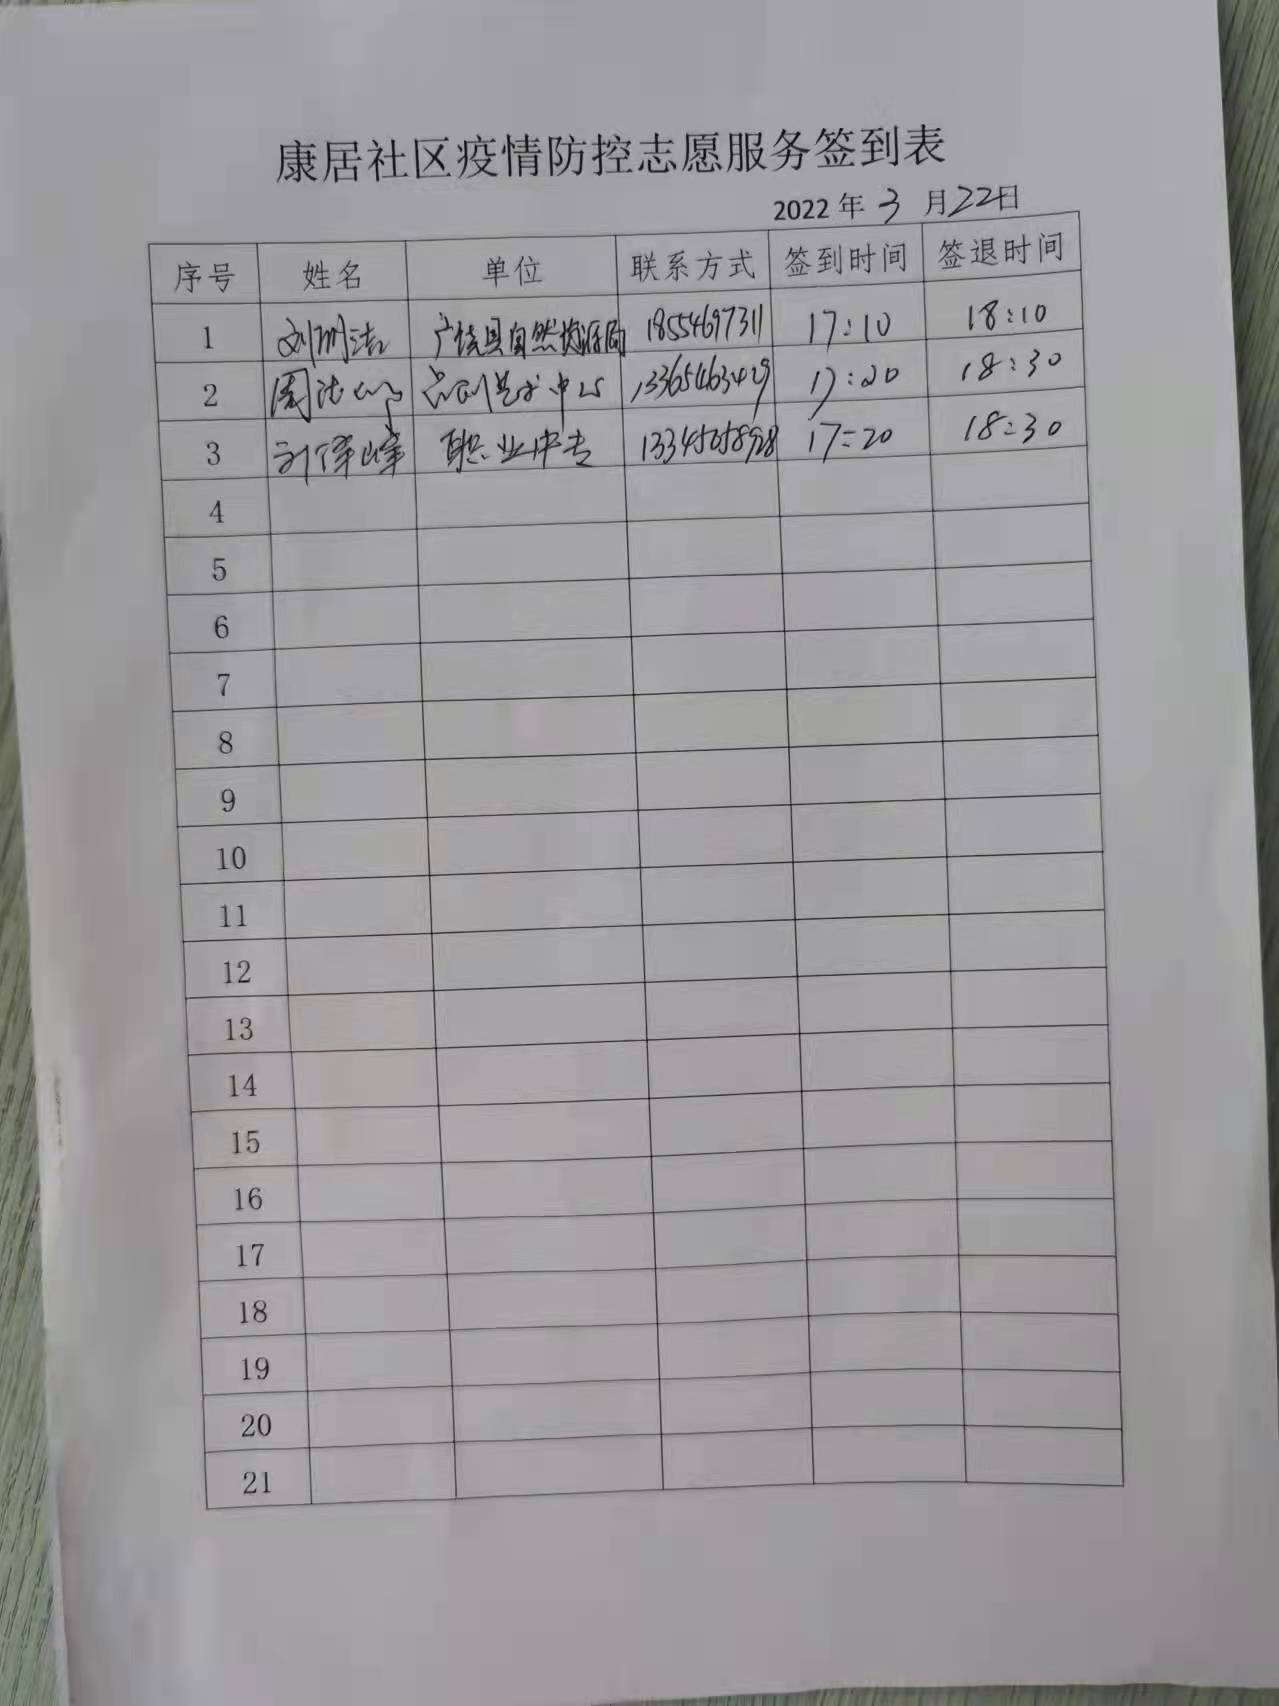 康居社区疫情防控志愿服务签到表
2022 年 3 月 22日
序号 姓名 单位 联系方式 签到时间 签退时间
1 刘明洁 广饶县自然资源局 18554697311 17:10 18:10
2 周 中心 13365463429 17:20 18:30
3 刘 峰 职业中专 17:20 18:30
4
5
6
7
8
9
10
11
12
13
14
15
16
17
18
19
20
21